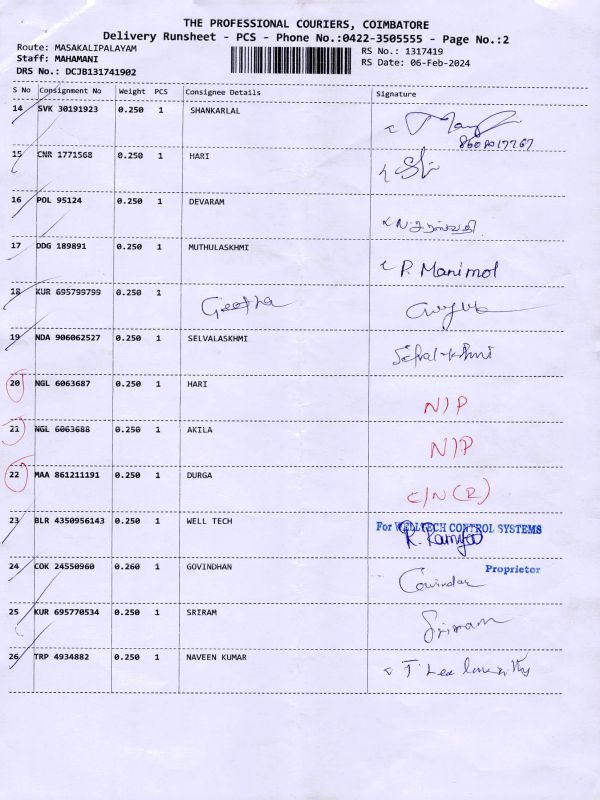 THE PROFESSIONAL COURIERS, COIMBATORE
Delivery Runsheet - PCS - Phone No.:0422-3505555 - Page No.:2
Route: MASAKALIPALAYAM RS No.: 1317419
Staff: MAHAMANI RS Date: 06-Feb-2024
DRS No.: DCJB131741902
S No Consignment No Weight PCS Consignee Details Signature
14 SVK 30191923 0.250 1 SHANKARLAL
15 CNR 1771568 0.250 1 HARI
16 POL 95124 0.250 1 DEVARAM
17 DDG 189891 0.250 1 MUTHULASKHMI P. Manimol
18 KUR 695799799 0.250 1 Geetha
19 NDA 906062527 0.250 1 SELVALASKHMI
20 NGL 6063687 0.250 1 HARI N/P
21 NGL 6063688 0.250 1 AKILA N/P
22 MAA 861211191 0.250 1 DURGA C/N (R)
23 BLR 4350956143 0.250 1 WELL TECH For WELLTECH CONTROL SYSTEMS
R. Ramya
Proprietor
24 COK 24550960 0.260 1 GOVINDHAN
25 KUR 695770534 0.250 1 SRIRAM Sriram
26 TRP 4934882 0.250 1 NAVEEN KUMAR